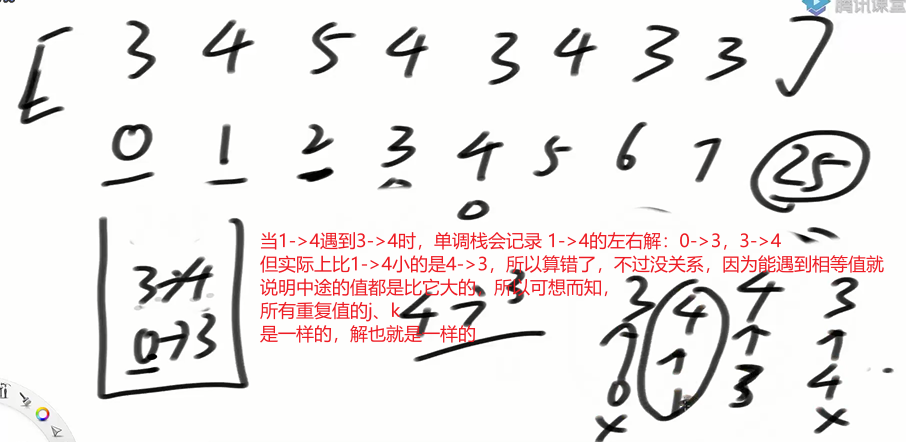 腾讯课堂
[ 3 4 5 4 3 4 3 3 ]
0 1 2 3 4 5 6 7 25
0
当1->4遇到3->4时，单调栈会记录 1->4的左右解：0->3，3->4
但实际上比1->4小的是4->3，所以算错了，不过没关系，因为能遇到相等值就
说明中途的值都是比它大的，所以可想而知，
所有重复值的j、k
是一样的，解也就是一样的
3→4
0→3
4→3
3 4 4 3
↑ ↑ ↑ ↑
0 1 3 4
x x